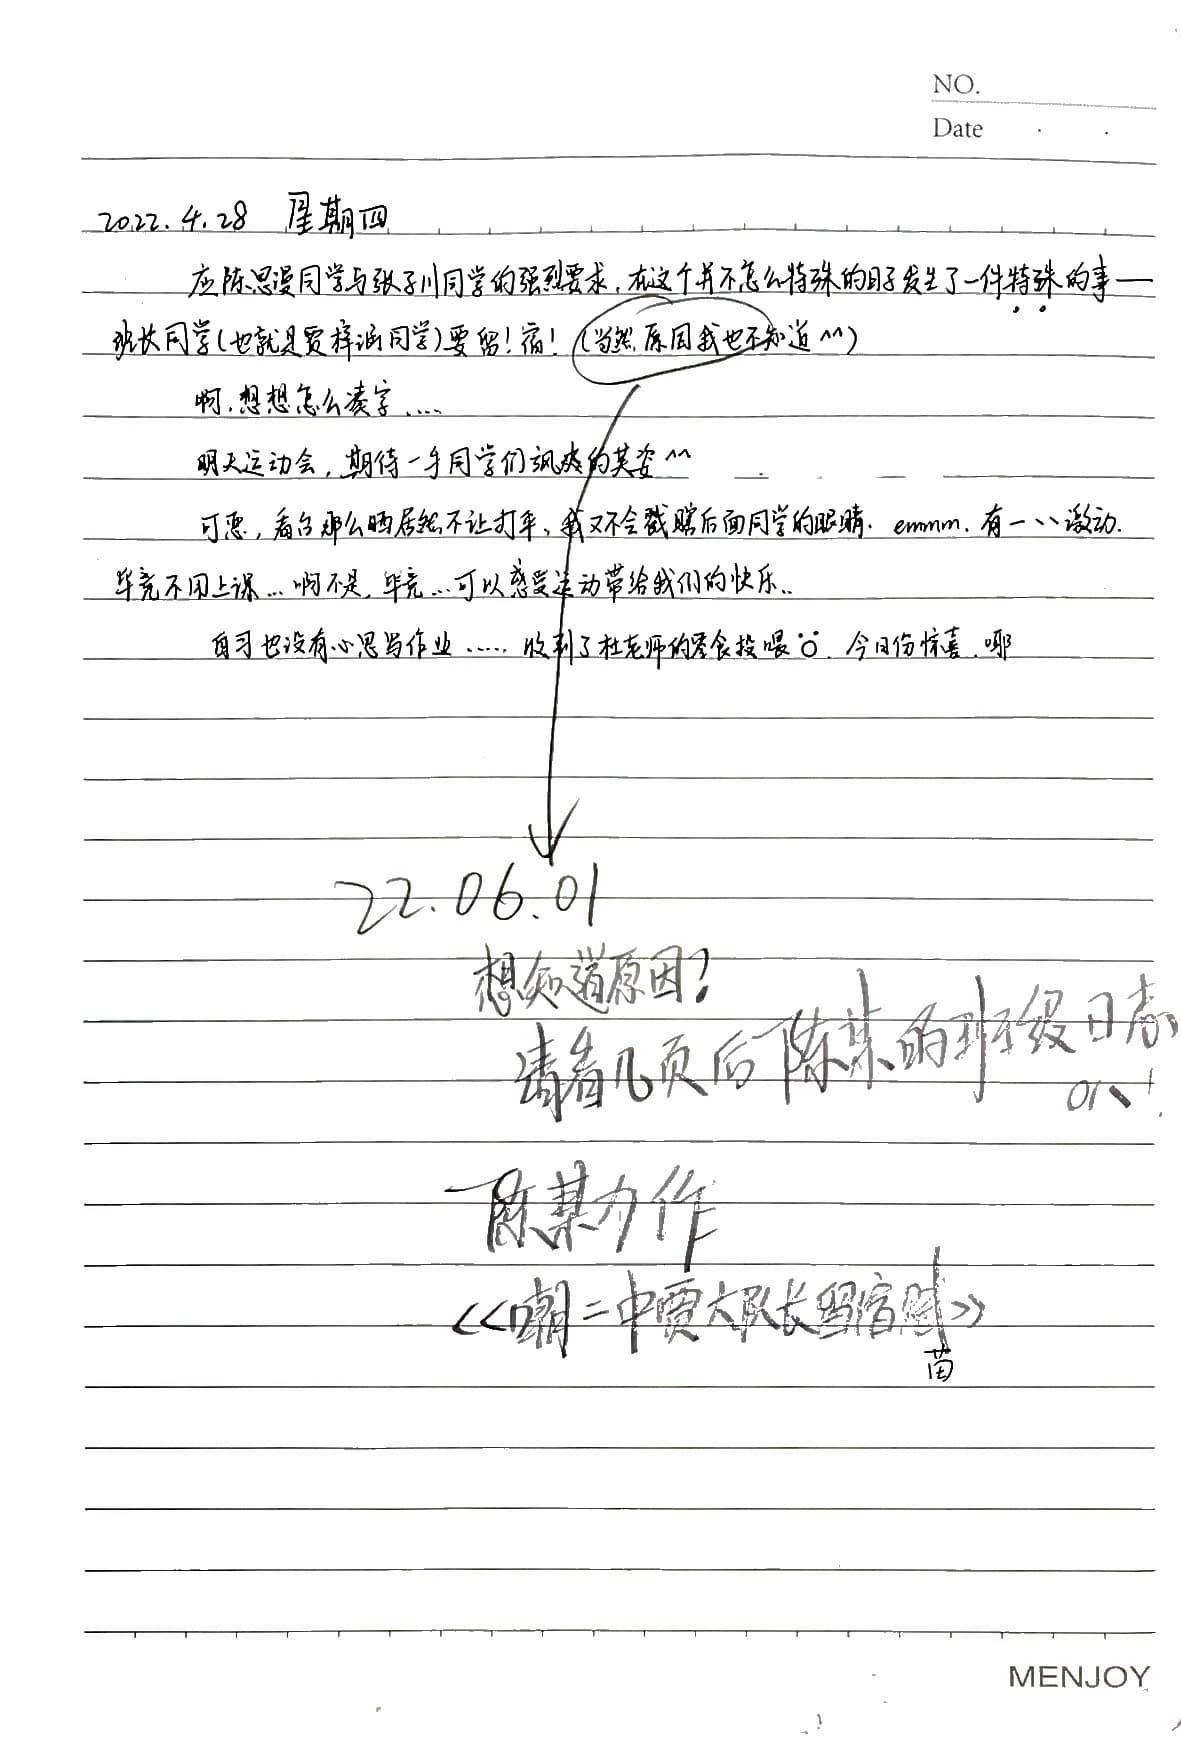 NO.
Date
2022.4.28 星期四
应陈思漫同学与张子川同学的强烈要求,在这个并不怎么特殊的日子发生了一件特殊的事——
班长同学(也就是贾梓涵同学)要留!宿!(当然,原因我也不知道^^)
啊,想想怎么凑字....
明天运动会,期待一手同学们飒爽的英姿^^
可恶,看台那么晒居然不让打伞,我又不会戳瞎后面同学的眼睛. emmm. 有一丶丶激动.
毕竟不用上课...啊不是,毕竟...可以感受运动带给我们的快乐..
自习也没有心思写作业..... 收到了杜老师的零食投喂 今日份惊喜.耶
22.06.01
想知道原因?
请看几页后陈某的班级日志
陈某力作
<<嘲二中贾大队长留宿赋>>
苗
MENJOY